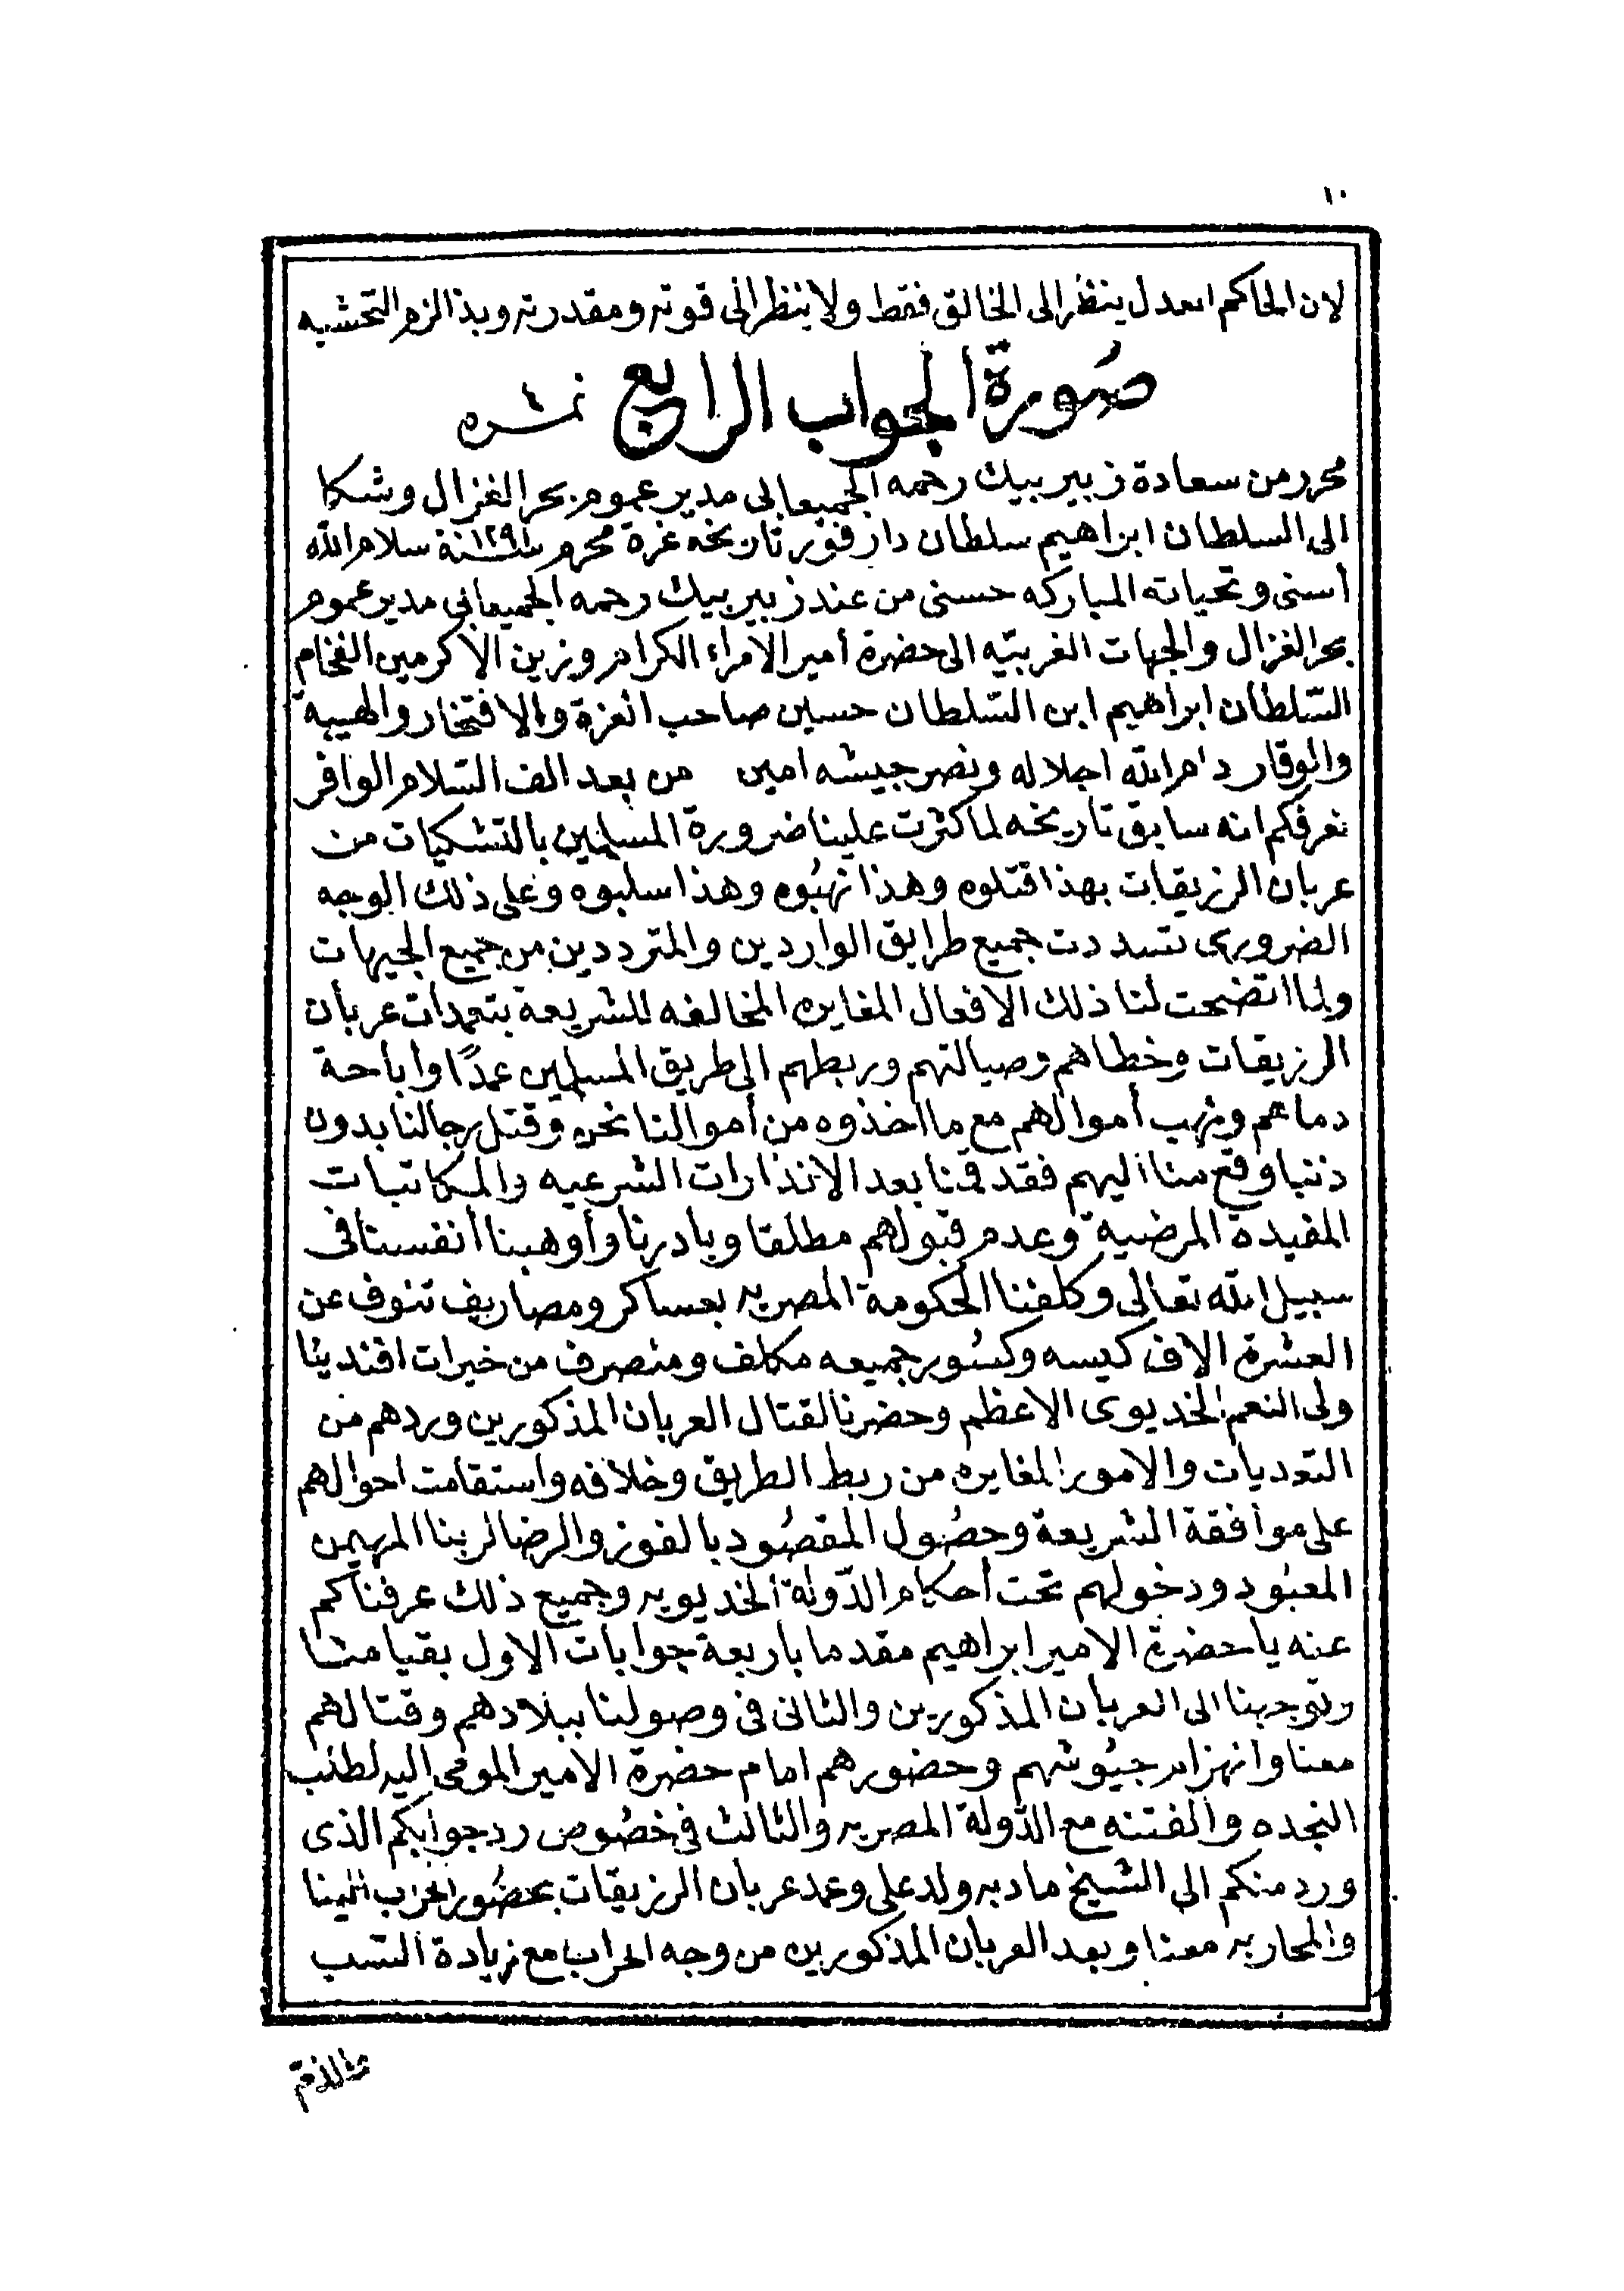 ١٠
لان الحاكم العدل ينظر الى الخالق فقط ولا ينظر الى قوته ومقدرته وبذا الزم التحشيه
صُورة الجواب الرابع نمره ٤
محرر من سعادة زبير بيك رحمه الجميعابى مدير عموم بحر الغزال وشكا
الى السلطان ابراهيم سلطان دارفور تاريخه غرة محرم سنة ١٢٩١ سلام الله
أسنى وتحياته المباركه حسنى من عند زبير بيك رحمه الجميعابى مدير عموم
بحر الغزال والجهات الغربيّه الى حضرة أمير الامراء الكرام وزين الاكرمين الفخام
السّلطان ابراهيم ابن السّلطان حسين صاحب العزة والافتخار والهيبة
والوقار دام الله اجلاله ونصر جيشه امين من بعد الف السّلام الوافر
نعرفكم انه سابق تاريخه لما كثرت علينا ضرورة المسلمين بالتشكيات من
عربان الرزيقات بهذا قتلوه وهذا نهبُوه وهذا سلبوه وعلى ذلك الوجه
الضرورى تسددت جميع طرايق الواردين والمترددين من جميع الجيهات
ولما اتضحت لنا ذلك الافعال المغايره المخالفه للشريعة بتعمدات عربان
الرزيقات وخطاهم وصيالتهم وربطهم الى طريق المسلمين عمدًا واباحة
دماهم ونهب أموالهم مع ما اخذوه من أموالنا نحن وقتل رجالنا بدون
ذنبا وقع منا اليهم فقد قمنا بعد الانذارات الشرعيه والمكاتبات
المفيدة المرضية وعدم قبولهم مطلقا وبادرنا وأوهبنا أنفسنا فى
سبيل الله تعالى وكلفنا الحكومة المصريه بعساكر ومصاريف تنوف عن
العشرة الاف كيسه وكسُور جميعه مكلف ومنصرف من خيرات افندينا
ولى النعم الخديوى الاعظم وحضرنا لقتال العربان المذكورين وردهم من
التعديات والامور المغايره من ربط الطريق وخلافه واستقامت احوالهم
على موافقة الشريعة وحصُول المقصُود بالفوز والرضا لربنا المهيمن
المعبُود ودخولهم تحت أحكام الدّولة الخديويه وجميع ذلك عرفناكم
عنه يا حضرة الامير ابراهيم مقدما باربعة جوابات الاول بقيامنا
وتوجهنا الى العربان المذكورين والثانى فى وصولنا ببلادهم وقتالهم
معنا وانهزام جيُوشهم وحضورهم امام حضرة الامير المومى اليه لطلب
النجده والفتنه مع الدّولة المصريه والثالث فى خصُوص رد جوابكم الذى
ورد منكم الى الشيخ مادبه ولد على وعمد عربان الرزيقات بحضُور الحراب الينا
والمحاربه معنا وبعد العربان المذكورين من وجه الحراب مع زيادة السب
والذم